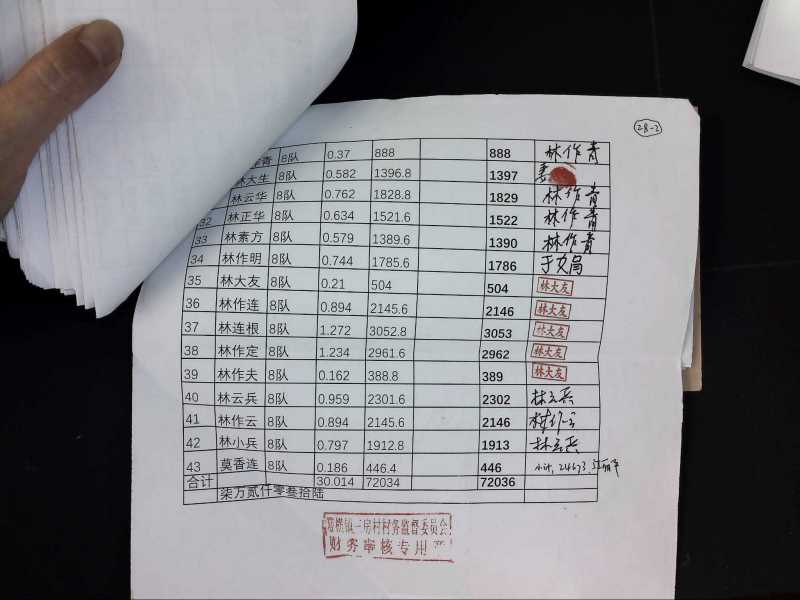 28-2
青 8队 0.37 888 888 林作青
林大生 8队 0.582 1396.8 1397
林云华 8队 0.762 1828.8 1829 林作青
32 林正华 8队 0.634 1521.6 1522 林作青
33 林素方 8队 0.579 1389.6 1390 林作青
34 林作明 8队 0.744 1785.6 1786
35 林大友 8队 0.21 504 504 林大友
36 林作连 8队 0.894 2145.6 2146 林大友
37 林连根 8队 1.272 3052.8 3053 林大友
38 林作定 8队 1.234 2961.6 2962 林大友
39 林作夫 8队 0.162 388.8 389 林大友
40 林云兵 8队 0.959 2301.6 2302 林云兵
41 林作云 8队 0.894 2145.6 2146 林作云
42 林小兵 8队 0.797 1912.8 1913 林云兵
43 莫香连 8队 0.186 446.4 446
合计 30.014 72034 72036
柒万贰仟零叁拾陆
镇三房村村务监督委员会
财务审核专用章